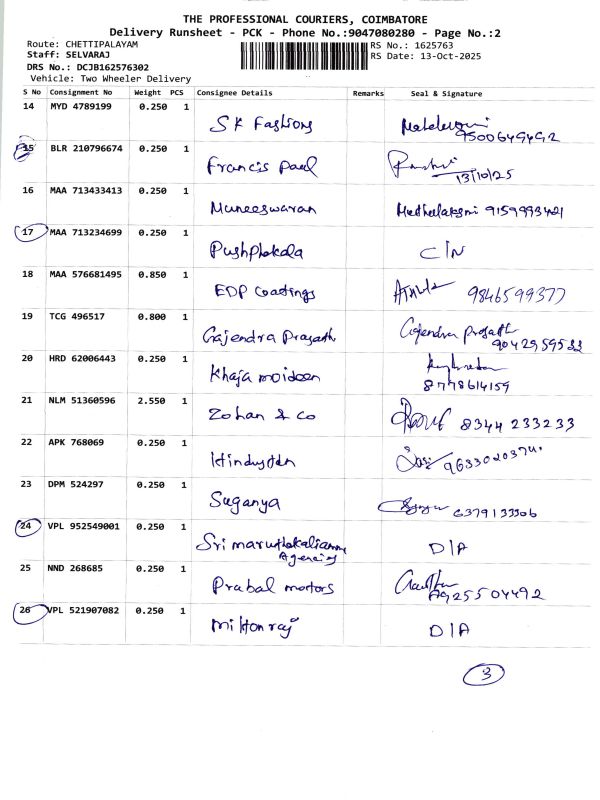 THE PROFESSIONAL COURIERS, COIMBATORE
Delivery Runsheet - PCK - Phone No.:9047080280 - Page No.:2
Route: CHETTIPALAYAM
RS No.: 1625763
Staff: SELVARAJ
RS Date: 13-Oct-2025
DRS No.: DCJB162576302
Vehicle: Two Wheeler Delivery
S No Consignment No Weight PCS Consignee Details Remarks Seal & Signature
14 MYD 4789199 0.250 1
SK Fashions
9500649492
15 BLR 210796674 0.250 1
Francis Paul
13/10/25
16 MAA 713433413 0.250 1
Muneeswaran 9159993421
17 MAA 713234699 0.250 1
Pushphokala C/N
18 MAA 576681495 0.850 1
EDP Coatings 9846599377
19 TCG 496517 0.800 1
Gajendra Prasath Gajendra Prasath
20 HRD 62006443 0.250 1
Khaja moideen
8778614159
21 NLM 51360596 2.550 1
Zohan & Co 8344 233233
22 APK 768069 0.250 1
Hindustan
23 DPM 524297 0.250 1
Suganya 6379133306
24 VPL 952549001 0.250 1
Sri
Agency D/A
25 NND 268685 0.250 1
Prabal motors
26 VPL 521907082 0.250 1
Miltonraj D/A
3